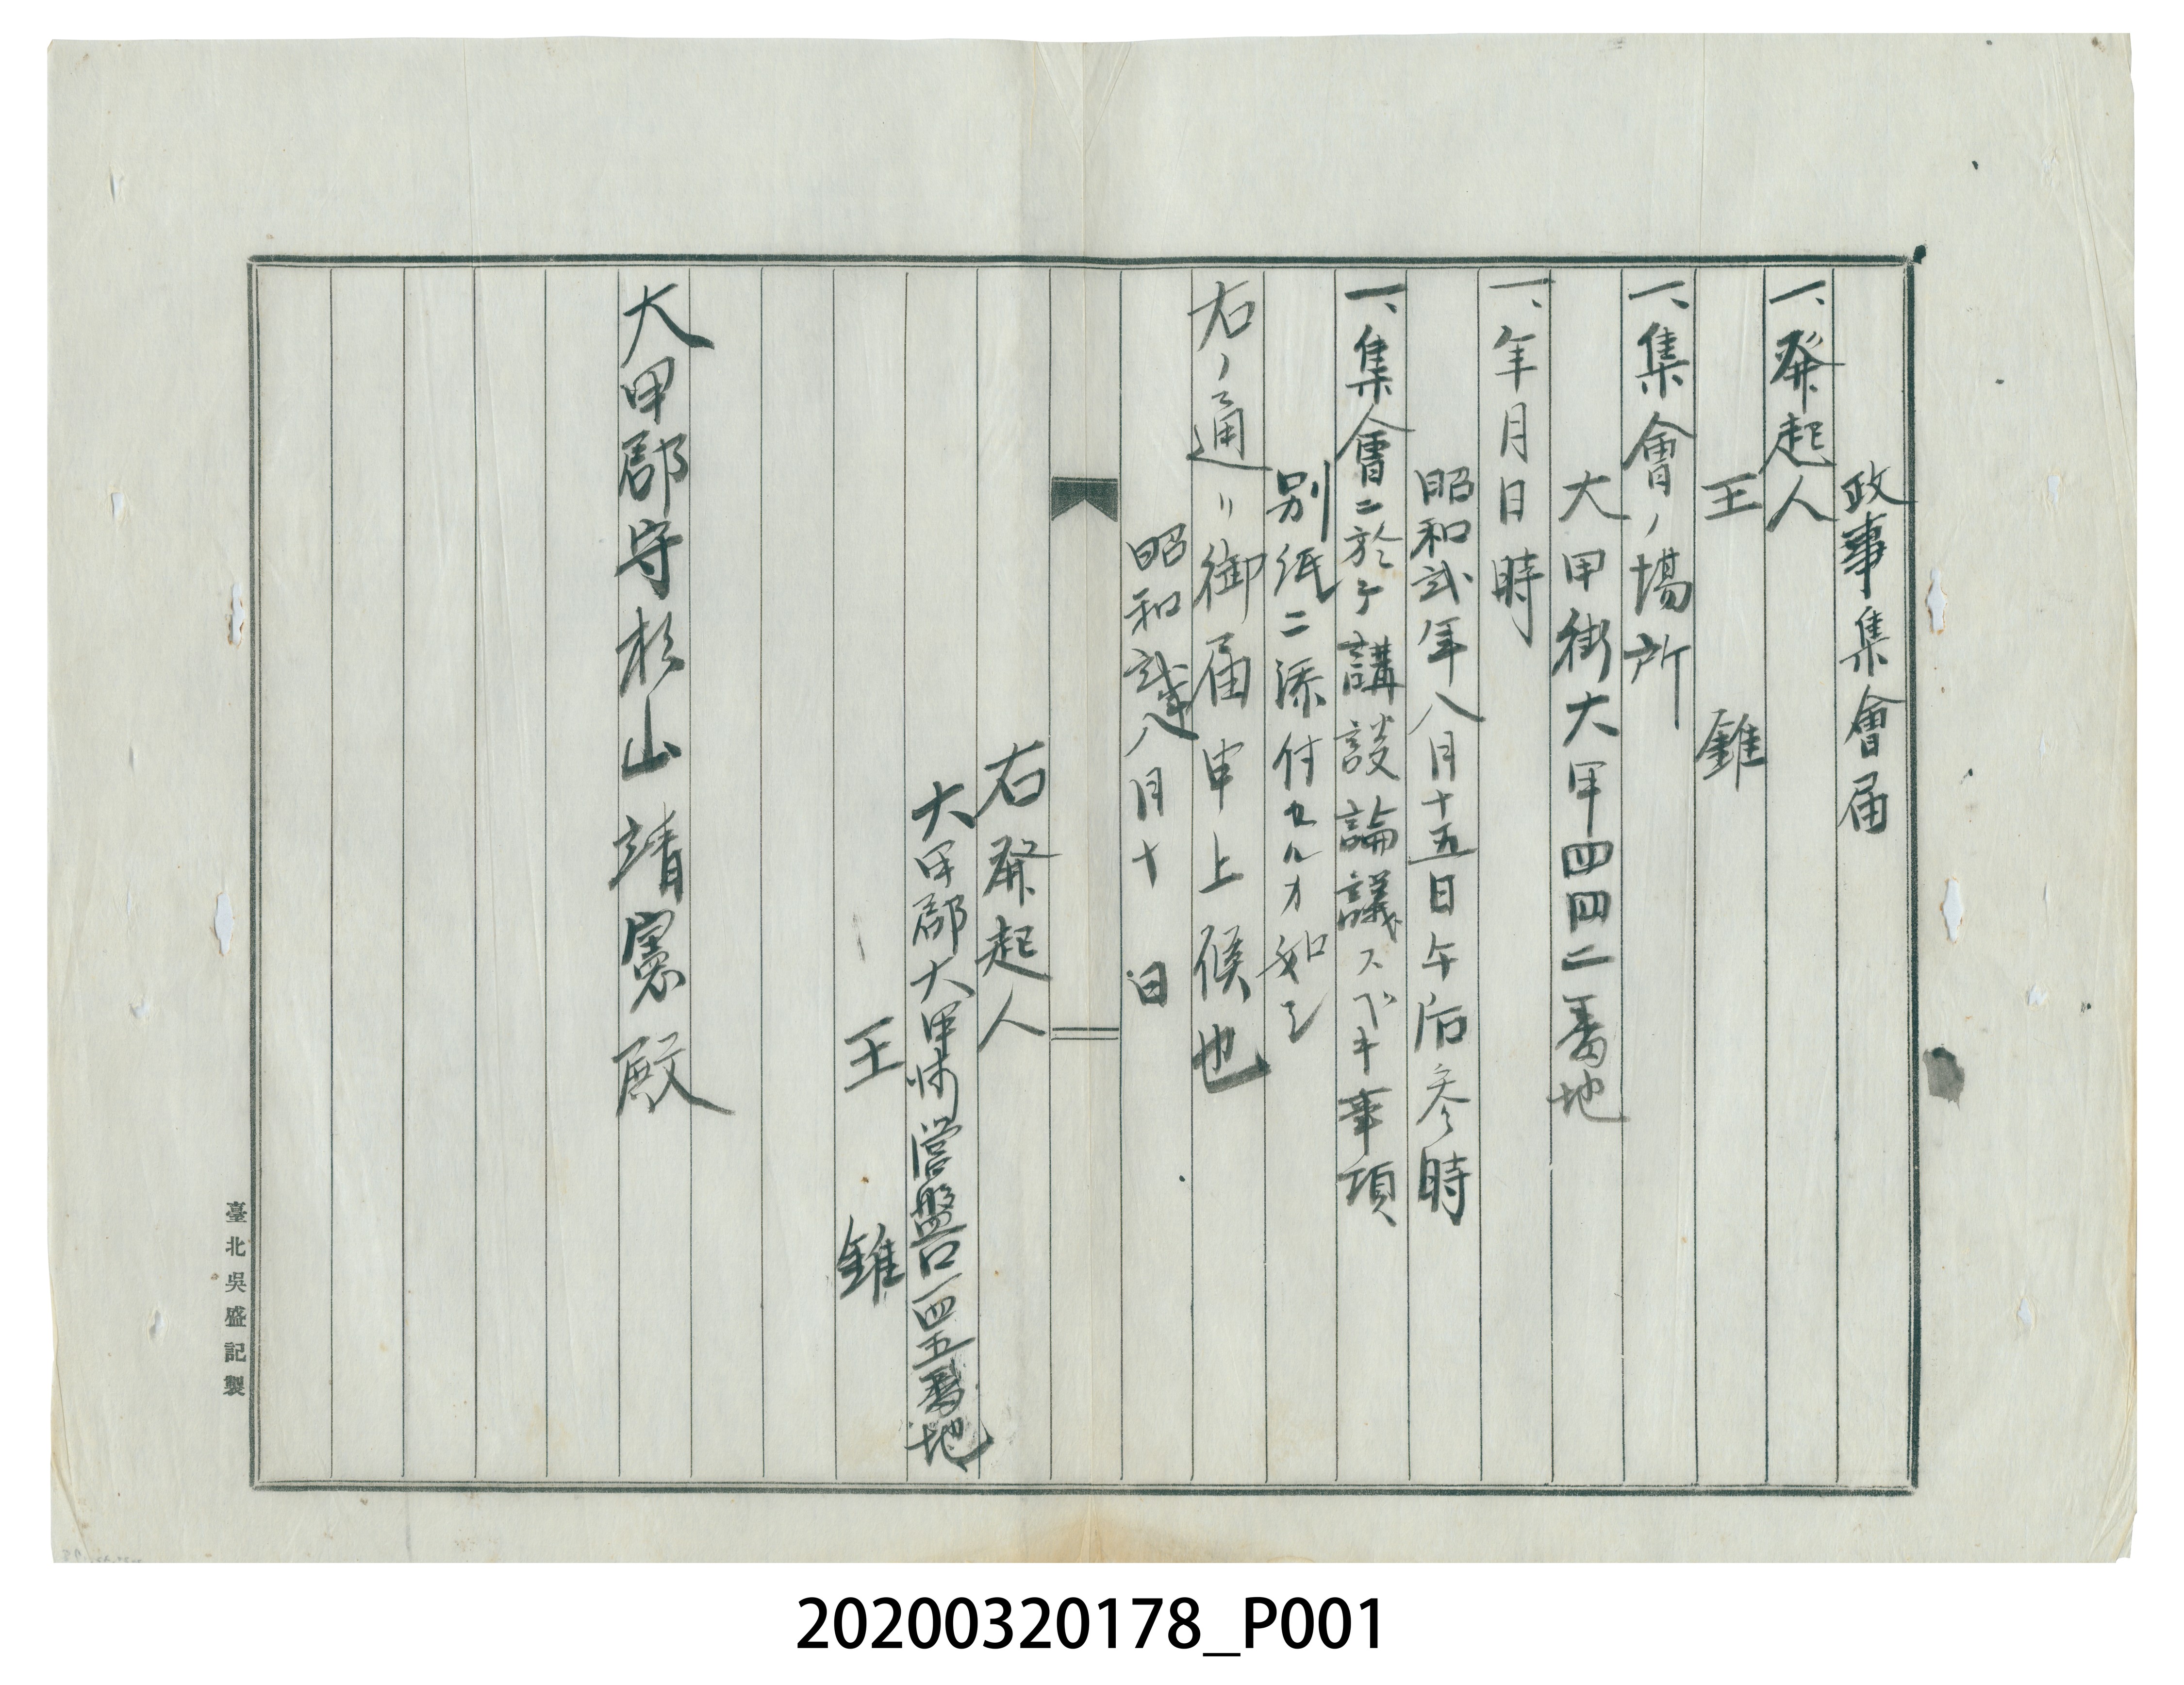 政事集會届
一、発起人
王錐
一、集會ノ場所
大甲街大甲四四二番地
一、年月日時
昭和弍年八月十五日午后参時
一、集會ニ於テ講談論議スベキ事項
別紙ニ添付セルカ如シ
右ノ通リ御届申上候也
昭和弍年八月十日
右発起人
大甲郡大甲街営盤口一四五番地
王錐
大甲郡守杉山靖憲殿
臺北吳盛記製
20200320178_P001